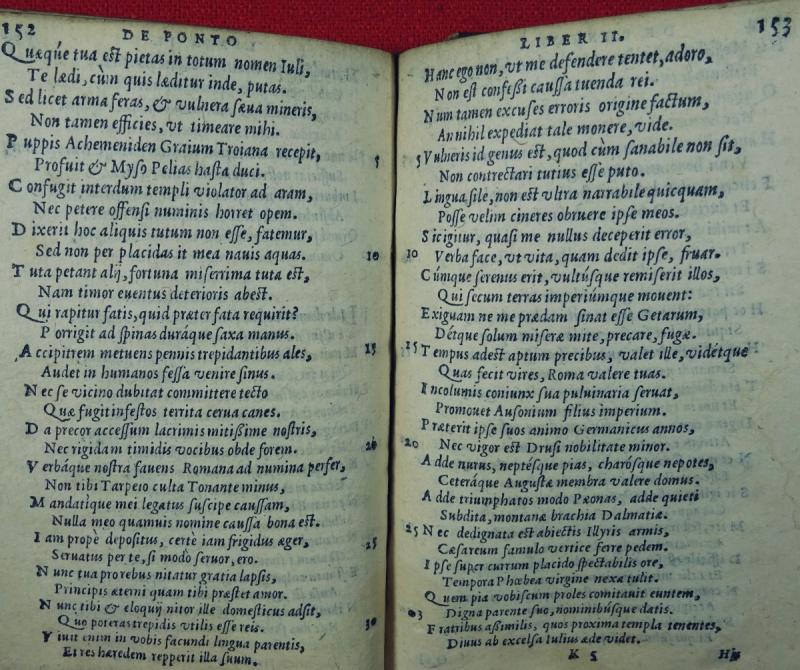 152
DE PONTO
Quæqúe tua est pietas in totum nomen Iuli,
Te lædi, cùm quis læditur inde, putas.
Sed licet arma feras, & vulnera sæua mineris,
Non tamen efficies, vt timeare mihi.
Puppis Achemeniden Graium Troiana recepit, 5
Profuit & Myso Pelias hasta duci.
Confugit interdum templi violator ad aram,
Nec petere offensi numinis horret opem.
Dixerit hoc aliquis tutum non esse, fatemur,
Sed non per placidas it mea nauis aquas. 10
Tuta petant alij, fortuna miserrima tuta est,
Nam timor euentus deterioris abest.
Qui rapitur fatis, quid præter fata requirit?
Porrigit ad spinas duráque saxa manus.
Accipitrem metuens pennis trepidantibus ales, 15
Audet in humanos fessa venire sinus.
Nec se vicino dubitat committere tecto
Quæ fugit infestos territa cerua canes.
Da precor accessum lacrimis mitißime nostris,
Nec rigidam timidis vocibus obde forem. 20
Verbáque nostra fauens Romana ad numina perfer,
Non tibi Tarpeio culta Tonante minus,
Mandatíque mei legatus suscipe caussam,
Nulla meo quamuis nomine caussa bona est.
Iam propè depositus, certè iam frigidus æger, 25
Seruatus per te, si modò seruor, ero.
Nunc tua pro rebus nitatur gratia lapsis,
Principis æterni quam tibi præstet amor.
Nunc tibi & eloquij nitor ille domesticus adsit,
Quo poteras trepidis vtilis esse reis. 30
Viuit enim in vobis facundi lingua parentis,
Et res hæredem repperit illa suum.
LIBER II.
153
Hanc ego non, vt me defendere tentet, adoro,
Non est confeßi caussa tuenda rei.
Num tamen excuses erroris origine factum,
An nihil expediat tale monere, vide.
5 Vulneris id genus est, quod cùm sanabile non sit,
Non contrectari tutius esse puto.
Lingua sile, non est vltra narrabile quicquam,
Posse velim cineres obruere ipse meos.
Sic igitur, quasi me nullus deceperit error,
10 Verba face, vt vita, quam dedit ipse, fruar.
Cúmque serenus erit, vultúsque remiserit illos,
Qui secum terras imperiúmque mouent:
Exiguam ne me prædam sinat esse Getarum,
Détque solum miseræ mite, precare, fugæ.
15 Tempus adest aptum precibus, valet ille, vidétque
Quas fecit vires, Roma valere tuas.
Incolumis coniunx sua puluinaria seruat,
Promouet Ausonium filius imperium.
Præterit ipse suos animo Germanicus annos,
20 Nec vigor est Drusi nobilitate minor.
Adde nurus, neptésque pias, charósque nepotes,
Ceteráque Augustæ membra valere domus.
Adde triumphatos modo Pæonas, adde quieti
Subdita, montanæ brachia Dalmatiæ.
25 Nec dedignata est abiectis Illyris armis,
Cæsareum famulo vertice ferre pedem.
Ipse super currum placido spectabilis ore,
Tempora Phœbea virgine nexa tulit.
Quem pia vobiscum proles comitauit euntem,
03 Digna parente suo, nominibúsque datis.
Fratribus aßimilis, quos proxima templa tenentes,
Diuus ab excelsa Iulius æde videt.
K 5
His